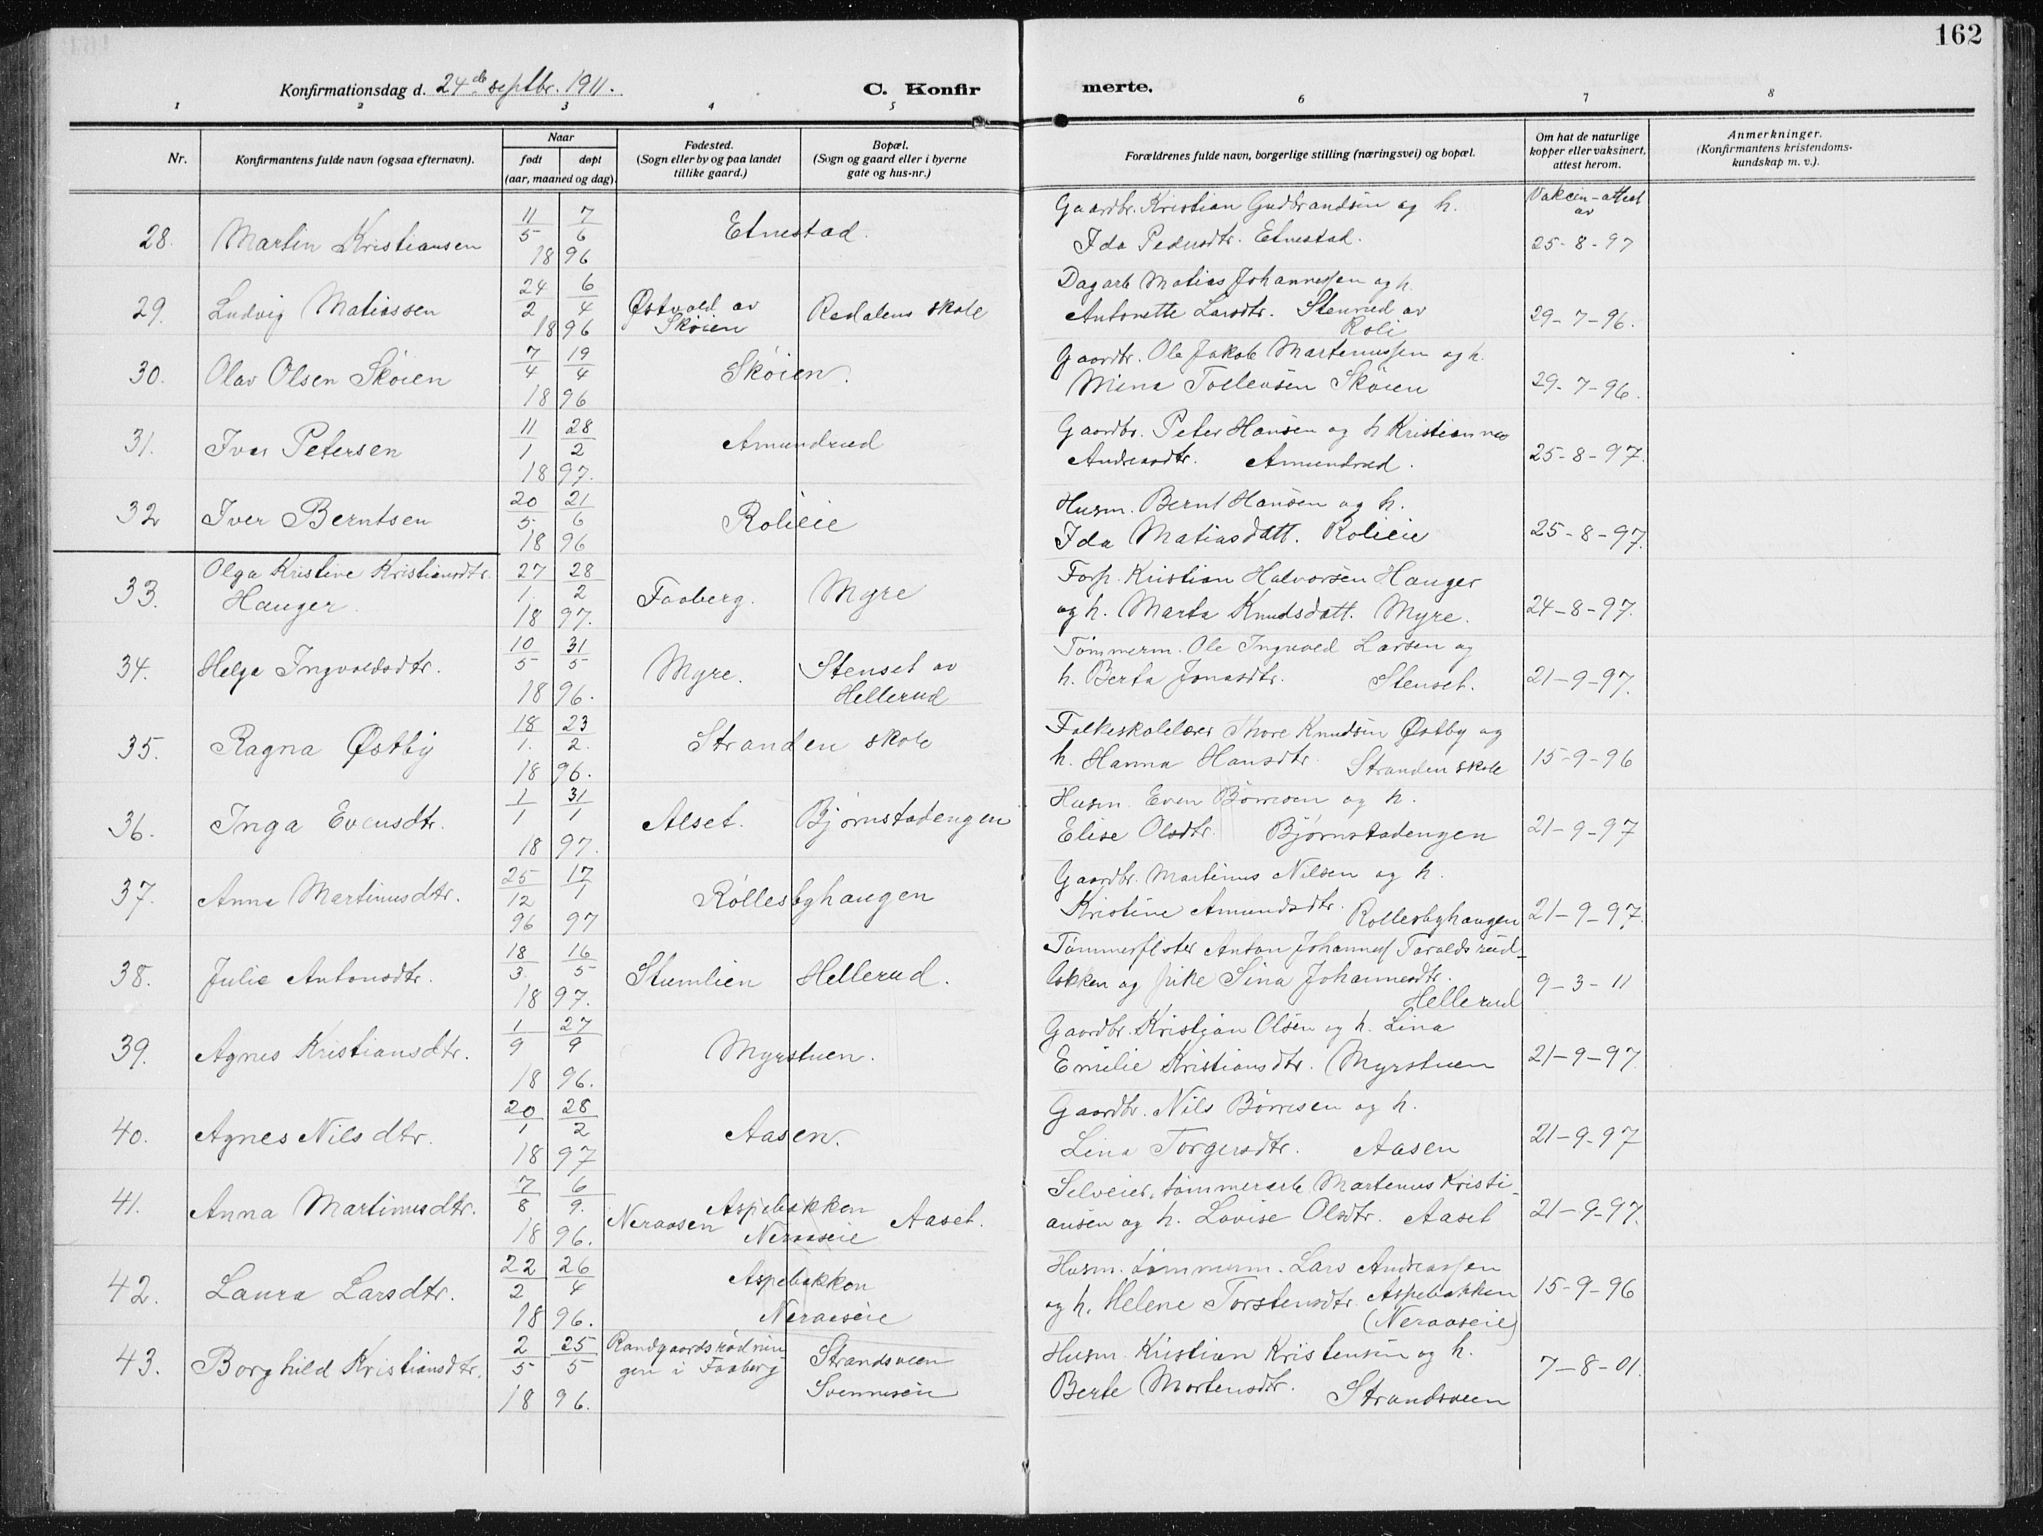 162
Konfirmationsdag d. 24de septbr. 1911.
C. Konfirmerte.
1 2 3 4 5 6 7 8
Nr.
Konfirmantens fulde navn (ogsaa efternavn).
Naar
født døpt
(aar, maaned og dag).
Fødested.
(Sogn eller by og paa landet
tillike gaard.)
Bopæl.
(Sogn og gaard eller i byerne
gate og hus-nr.)
Forældrenes fulde navn, borgerlige stilling (næringsvei) og bopæl.
Om hat de naturlige
kopper eller vaksinert,
attest herom.
Anmerkninger.
(Konfirmantens kristendoms-
kundskap m. v.).
28. Martin Kristiansen 11/5 7/6 1896 Etnestad. Gaardbr. Kristian Gudbrandsen og h.
Ida Pedersdtr. Etnestad. Vakcin-attest av 25-8-97
29. Ludvig Matiassen 24/2 6/4 1896 Østvold av Skøien Redalens skole Dagarb Matias Johannessen og h.
Antonette Larsdtr. Stenrud av Roli 29-7-96.
30. Olav Olsen Skøien 7/4 19/4 1896 Skøien. Gaardbr. Ole Jakob Martenussen og h.
Mina Tollevsen Skøien 29-7-96.
31. Iver Petersen 11/1 28/2 1897. Amundrud Gaardbr. Peter Hansen og h Kristianna
Andreasdtr. Amundrud. 25-8-97.
32 Iver Berntsen 20/5 21/6 1896 Rolieie Husm. Bernt Hansen og h.
Ida Matiasdatt. Rolieie 25-8-97.
33. Olga Kristine Kristiansdtr. Hauger. 27/1 28/2 1897. Faaberg. Myre Forp. Kristian Halvorsen Hauger
og h. Marta Knudsdatt. Myre. 24-8-97.
34. Helga Ingvaldsdtr. 10/5 31/5 1896. Myre. Stenset av Hellerud Tømmerm. Ole Ingvald Larsen og
h. Berta Jonasdtr. Stenset. 21-9-97.
35. Ragna Østby 18/1 23/2 1896. Stranden skole Folkeskolelærer Thore Knudsen Østby og
h. Hanna Hansdtr. Stranden skole 15-9-96
36. Inga Evensdtr. 1/1 31/1 1897. Alset. Bjørnstadengen Husm. Even Børresen og h.
Elise Olsdtr. Bjørnstadengen 21-9-97
37. Anna Martinusdtr. 25/12 96 17/1 97 Røllesbyhaugen Gaardbr. Martinus Nilsen og h.
Kristine Amundsdtr. Rollesbyhaugen 21-9-97.
38. Julie Antonsdtr. 18/3 16/5 1897. Stumlien Hellerud. Tømmerfløter Anton Johannes Taraldsrud-
løkken og pike Sina Johannesdtr. Hellerud 9-3-11
39. Agnes Kristiansdtr. 1/9 27/9 1896. Myrstuen. Gaardbr. Kristian Olsen og h. Lina
Emilie Kristiansdtr. Myrstuen 21-9-97.
40. Agnes Nilsdtr. 20/1 28/2 1897 Aasen. Gaardbr. Nils Børresen og h.
Lina Torgersdtr. Aasen 21-9-97
41. Anna Martinusdtr. 7/8 6/9. 1896. Neraasen Aspebakken Neraaseie Aaset. Selveier, tømmerarb. Martenus Kristi-
ansen og h. Lovise Olsdtr. Aaset 21-9-97.
42. Laura Larsdtr. 22/2 26/4 1896. Aspebakken Neraaseie Husm. tømmerm. Lars Andreassen
og h. Helene Torstensdtr. Aspebakken (Neraaseie) 15-9-96
43. Borghild Kristiansdtr. 2/5 25/5 1896. Randgaardsrødnin
gen i Faaberg Strandsveen Svenneseie Husm. Kristian Kristensen og h.
Berte Mortensdtr. Strandsveen 7-8-01.